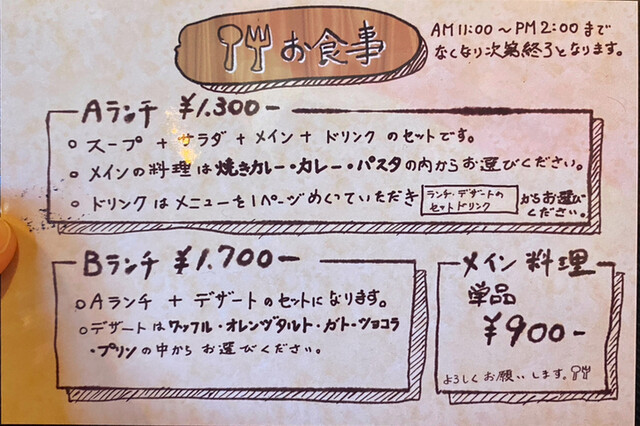 お食事
AM 11:00 〜 PM 2:00 まで
なくなり次第終了となります。
Aランチ ¥1.300-
○ スープ + サラダ + メイン + ドリンク のセットです。
○ メインの料理は焼きカレー・カレー・パスタの内からお選びください。
○ ドリンクはメニューを1ページめくっていただき
ランチ・デザートの
セットドリンク
からお選び
ください。
Bランチ ¥1.700-
○ Aランチ + デザートのセットになります。
○ デザートはワッフル・オレンヂタルト・ガト・ツョコラ
・プリンの中からお選びください。
メイン料理
単品
¥900-
よろしくお願いします。